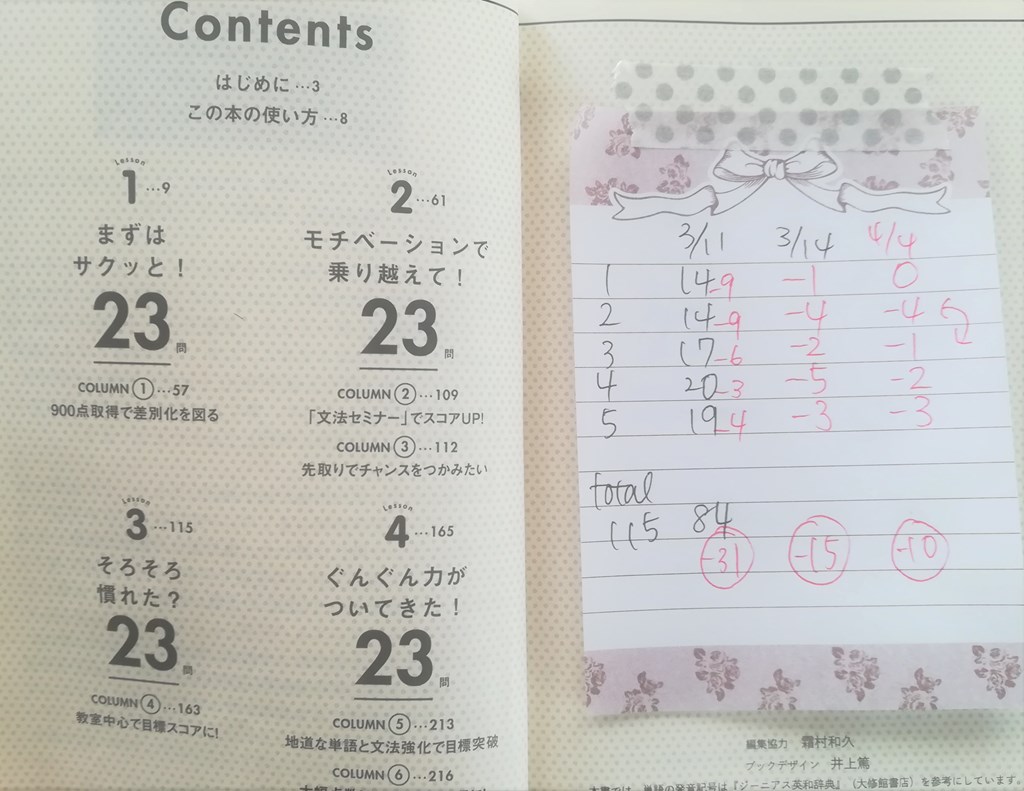 Contents
はじめに…3
この本の使い方…8
Lesson
1…9
まずは
サクッと！
23問
COLUMN①…57
900点取得で差別化を図る
Lesson
2…61
モチベーションで
乗り越えて！
23問
COLUMN②…109
「文法セミナー」でスコアUP!
COLUMN③…112
先取りでチャンスをつかみたい
Lesson
3…115
そろそろ
慣れた？
23問
COLUMN④…163
教室中心で目標スコアに!
Lesson
4…165
ぐんぐん力が
ついてきた！
23問
COLUMN⑤…213
地道な単語と文法強化で目標突破
COLUMN⑥…216
3/11 3/14 4/4
1 14-9 -1 0
2 14-9 -4 -4
3 17-6 -2 -1
4 20-3 -5 -2
5 19-4 -3 -3
total
115 84
-31 -15 -10
編集協力 霜村和久
ブックデザイン 井上篤
本書では、単語の発音記号は『ジーニアス英和辞典』（大修館書店）を参考にしています。